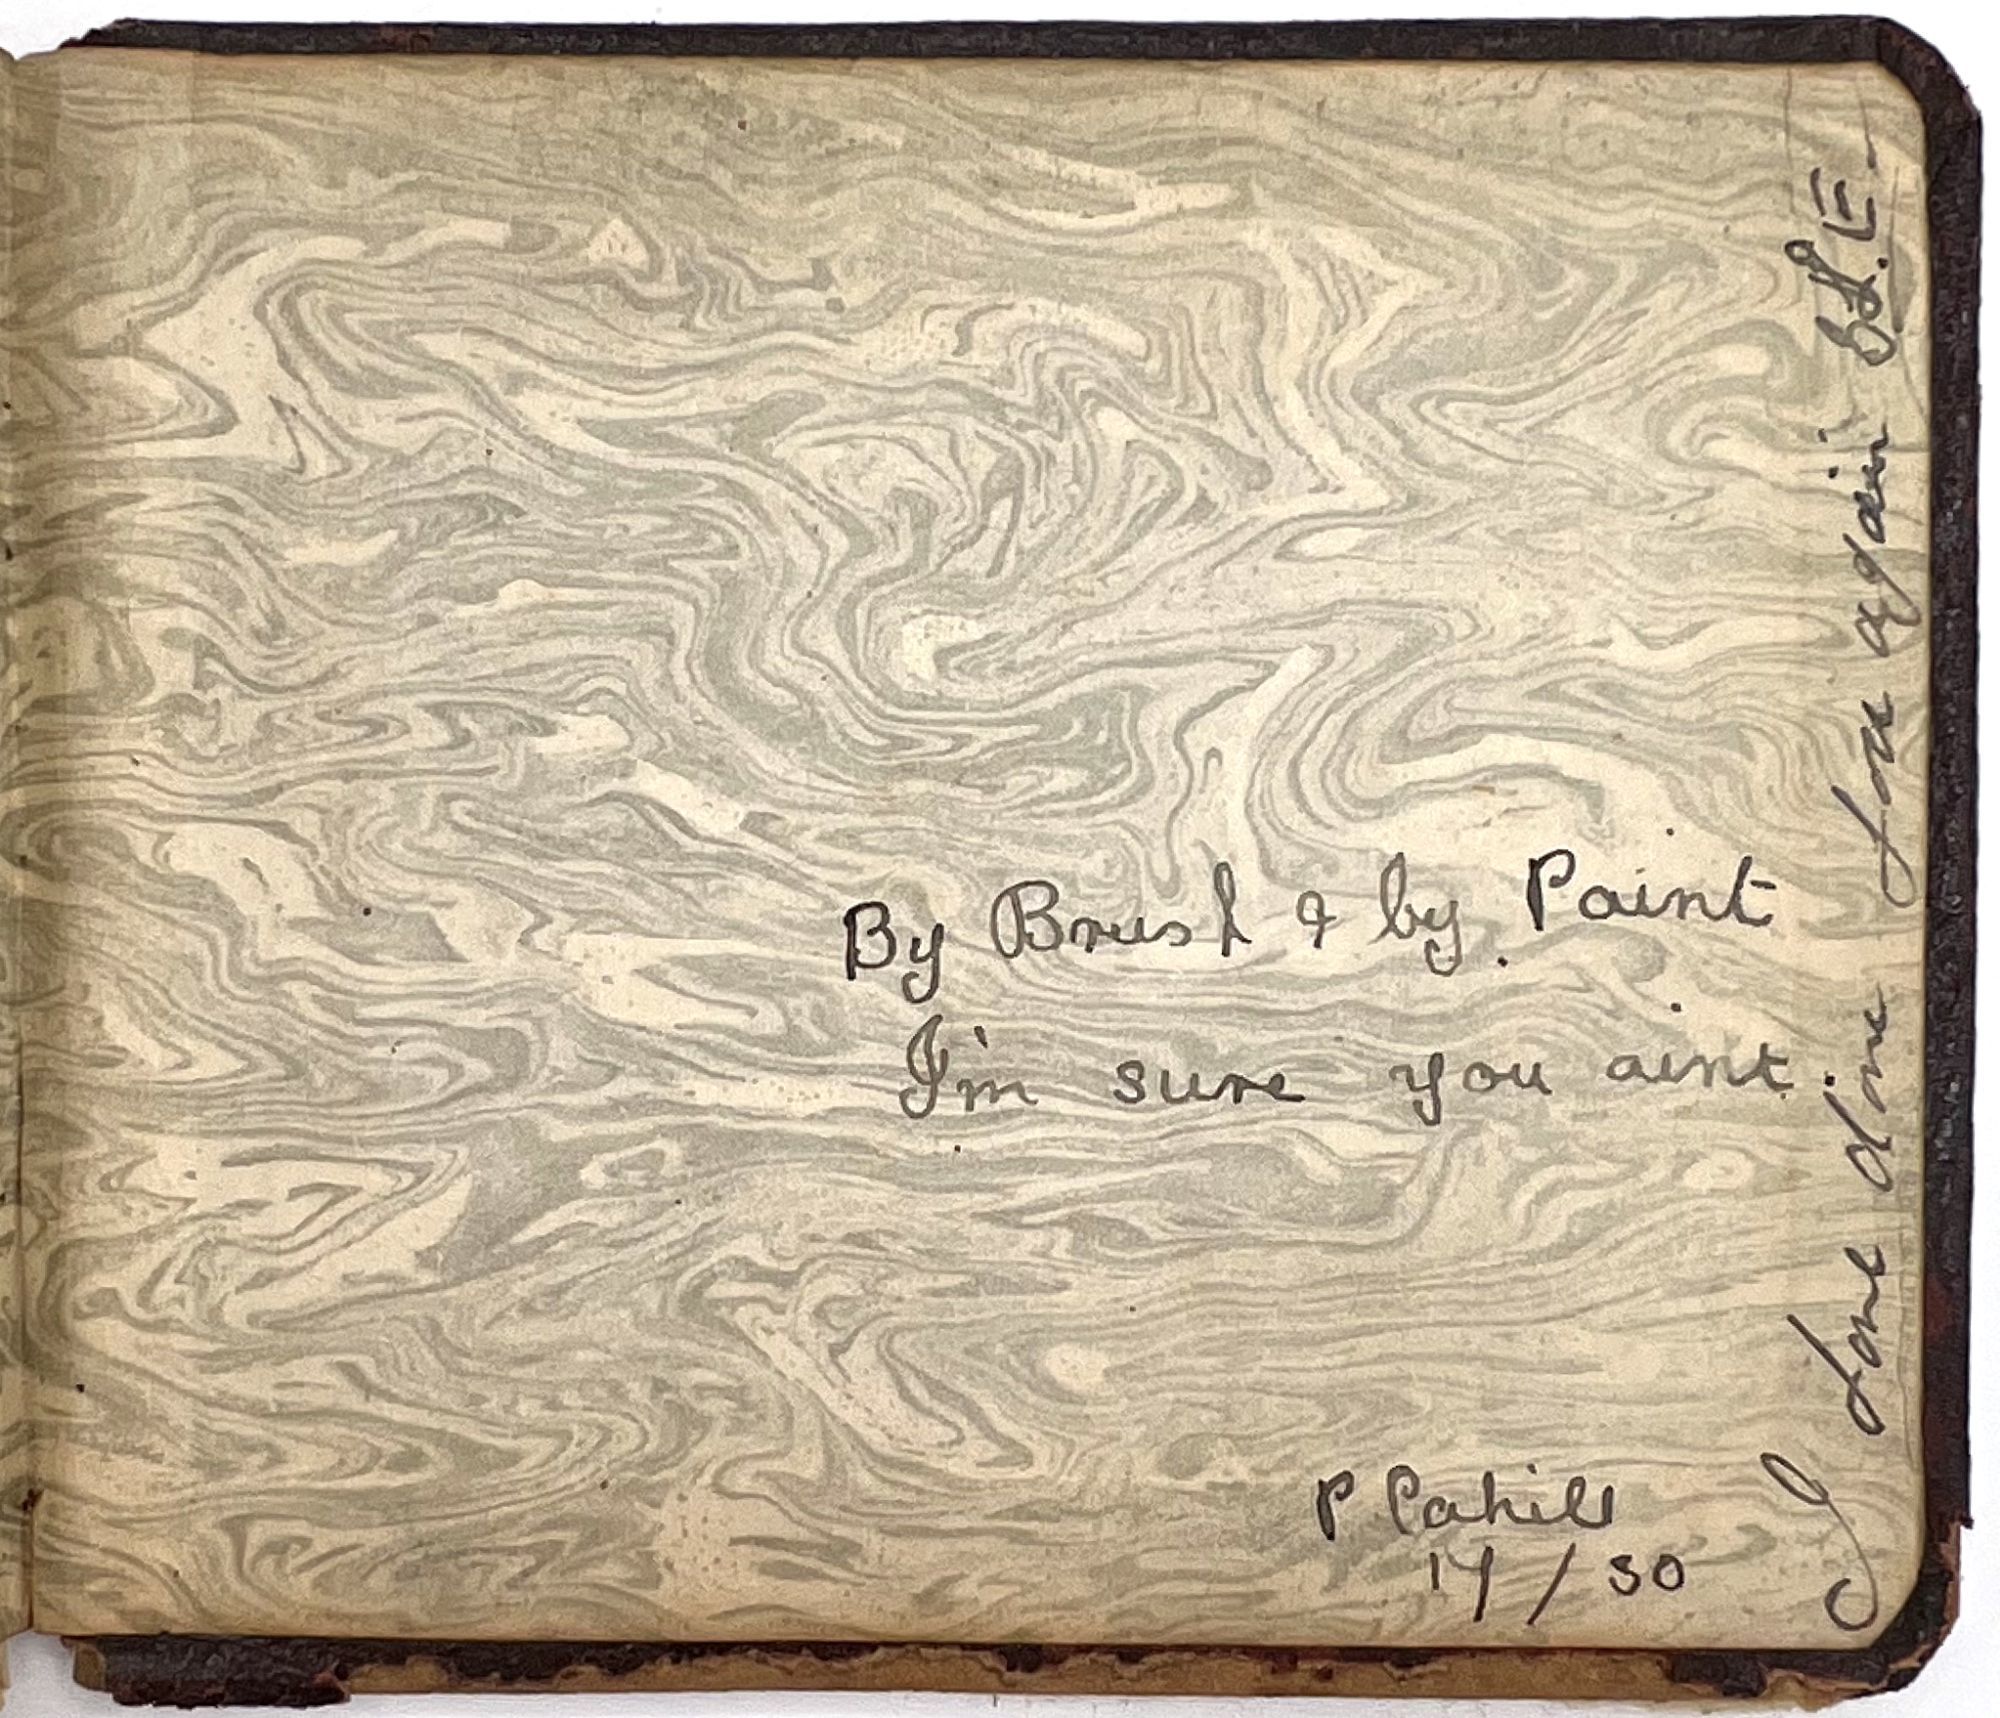 By Brush & by Paint
I'm sure you aint.
P Cahill
17 / 30
I have done you again